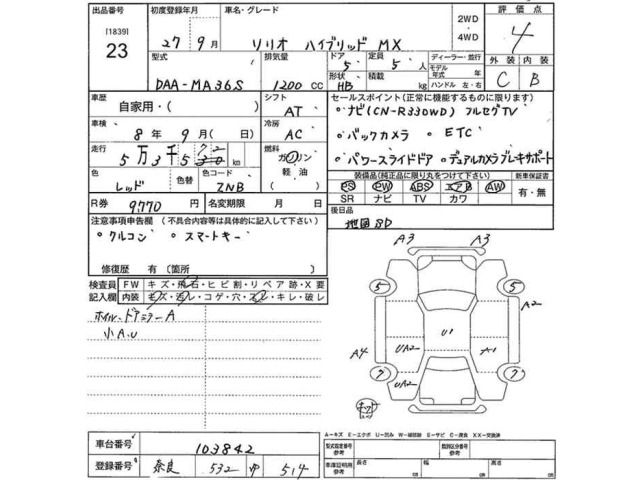 出品番号 初度登録年月 車名・グレード 2WD・4WD 評価点
[1839]
23
27年9月 ソリオ ハイブリッド MX 4
型式 排気量 ドア 定員 ディーラー・並行 外装 内装
5 5人 モデル年式 年
DAA-MA36S 1200cc 形状 HB 積載 kg ハンドル 左・右 C B
車歴 シフト セールスポイント(正常に機能するものに限ります)
自家用・( ) AT ◦ナビ(CN-R330WD) フルセグTV
車検 冷房
8年9月( 日) AC ◦バックカメラ ◦ETC
走行 燃料
5万3千532km ガソリン ◦パワースライドドア ◦デュアルカメラブレーキサポート
軽油
色 色替 色コード 装備品(純正品に限り丸をつけて下さい) 新車保証書
レッド ZNB PS PW ABS エアB AW 有・無
SR ナビ TV カワ
R券 9770円 名変期限 月 日 後日品
注意事項申告欄 (不具合内容等は具体的に記入して下さい) 地図SD
◦クルコン ◦スマートキー
修復歴 有(箇所 )
検査員記入欄 FW キズ・飛石・ヒビ割・リペア跡・X要
内装 キズ・汚レ・コゲ・穴・スレ・キレ・破レ
ホイル、ドアミラーA
小A.U
A3 A3
5 5
A2
U1
A4 UA2 A1
7 UA2 7
キット
A-キズ E-エクボ U-凹み W-補修跡 S-サビ C-腐食 XX-交換済
車台番号 103842 型式指定番号 参考 類別区分番号 参考
登録番号 奈良 532 ゆ 514 車庫証明用 参考 長さ cm 幅 cm 高さ cm